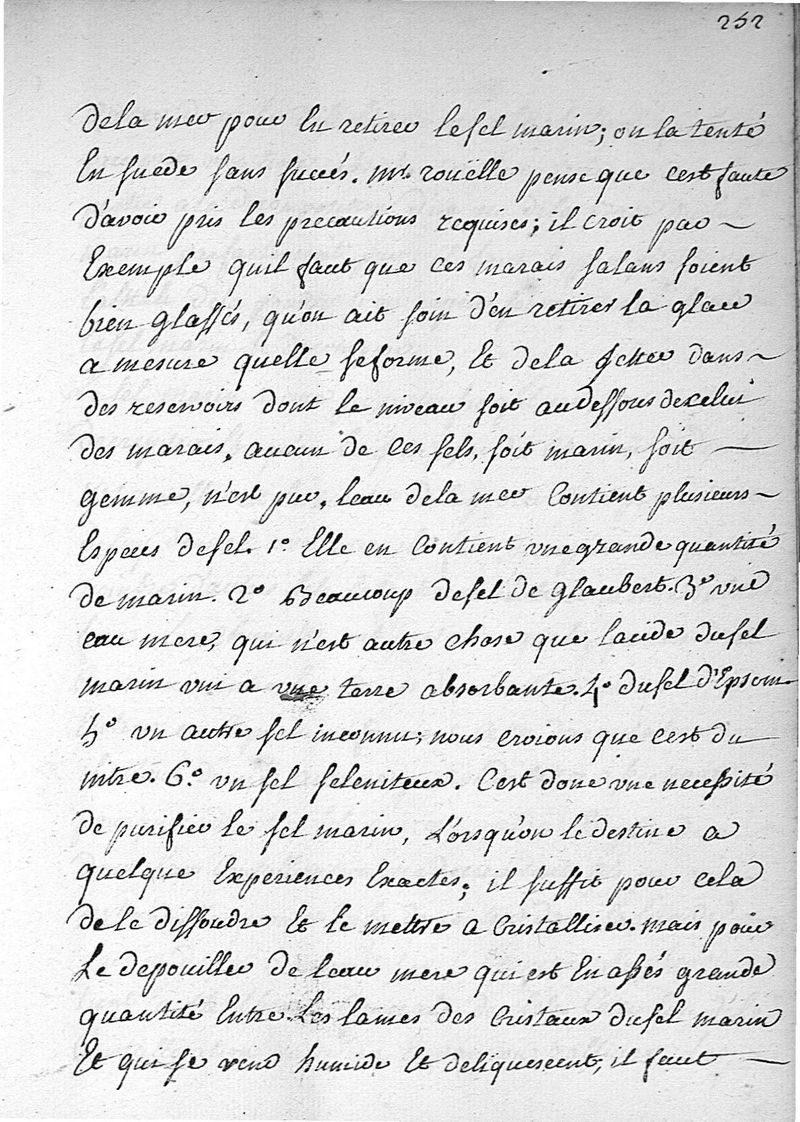 252
de la mer pour En retirer le sel marin; on la tenté
En suede sans succés. mr. roüelle pense que cest faute
d'avoir pris les precautions requises; il croit par
Exemple quil faut que ces marais salans soient
bien glassés, qu'on ait soin d'en retirer la glace
a mesure quelle se forme, Et de la jetter dans
des reservoirs dont le niveau soit au dessous de celui
des marais. aucun de ces sels, soit marin, soit
gemme, n'est pur. leau de la mer Contient plusieurs
Especes de sel. 1º Elle en Contient vne grande quantité
de marin. 2º Beaucoup de sel de glaubert. 3º vne
eau mere, qui n'est autre chose que lacide du sel
marin vni a vne terre absorbante. 4º du sel d'Epsom
5º vn autre sel inconnu; nous croions que cest du
nitre. 6º vn sel seleniteux. C'est donc vne necessité
de purifier le sel marin, Lorsqu'on le destine a
quelque Experiences Exactes; il suffit pour cela
de le dissoudre Et le mettre a Cristalliser. mais pour
Le depouiller de leau mere qui est En assés grande
quantité Entre Les lames des Cristaux du sel marin
Et qui le rend humide Et deliquescent, il faut